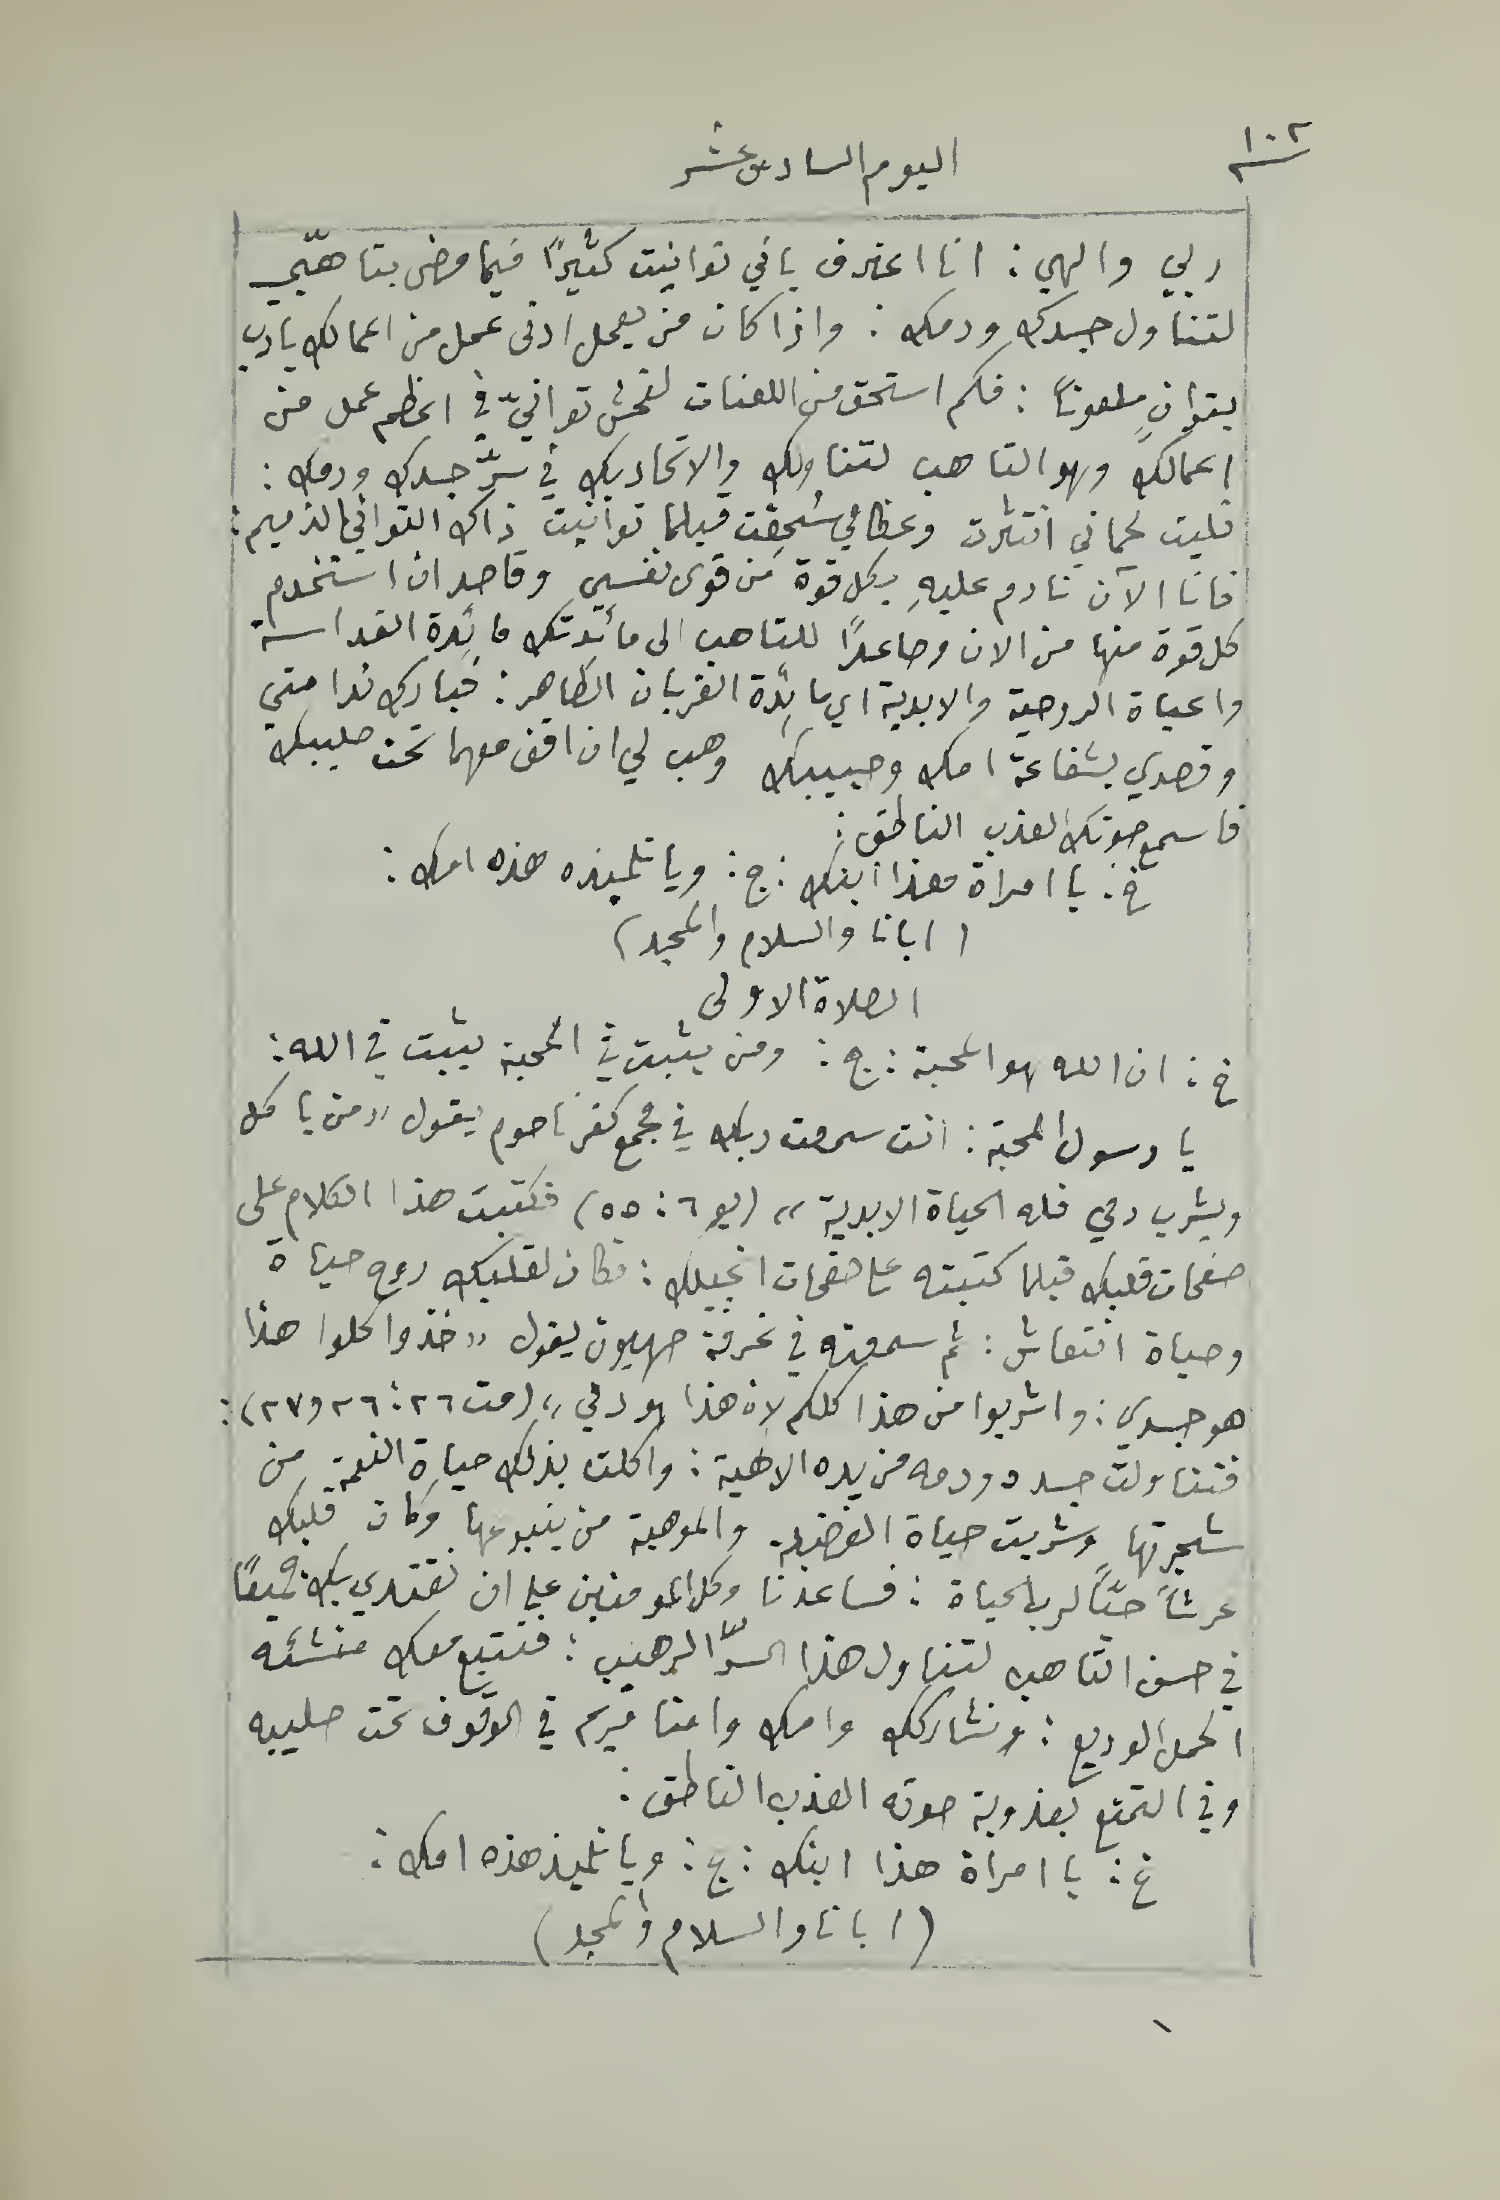 ١٠٢
اليوم السادس عشر
ربي والهي : انا اعترف باني توانيت كثيرًا فيما مضى بتاهبي
لتناول جسدك ودمك : واذا كان من يعمل ادنى عمل من اعمالك يا رب
بتوانٍ ملعونًا : فكم استحق من اللعنات لفحش توانيّ في اعظم عمل من
اعمالك وهو التاهب لتناولك والاتحاد بك في سرّ جسدك ودمك :
فليت لحماني انتثرت وعظامي سُحِقت قبلما توانيت ذاك التواني الذميم :
فانا الآن نادم عليهِ بكل قوة من قوى نفسي وقاصد ان استخدم
كل قوة منها من الان وصاعدًا للتاهب الى مائدتك مائدة القداسة
والحياة الروحية والابدية اي مائدة القربان الطاهر : فبارك ندامتي
وقصدي بشفاعة امك وحبيبك وهب لي ان اقف معهما تحت صليبك
فاسمع صوتك العذب الناطق :
خ : يا امراة هذا ابنك : ج : ويا تلميذه هذه امك :
( ابانا والسلام والمجد )
الصلاة الاولى
خ : ان الله هو المحبة : ج : ومن يثبت في المحبة يثبت في الله :
يا رسول المحبة : انت سمعت ربك في مجمع كفرناحوم يقول « من ياكل
ويشرب دمي فله الحياة الابدية » (يو ٦ : ٥٥) فكتبتَ هذا الكلام على
صفحات قلبك قبلما كتبته على صفحات انجيلك : فكان لقلبك روح حياة
وحياة انتعاش : ثم سمعته في غرفة صهيون يقول « خذوا كلوا هذا
هو جسدي : واشربوا من هذا كلكم لان هذا هو دمي » (مت ٢٦ : ٢٦ و٢٧) :
فتناولت جسده ودمه من يده الالهية : واكلت بذلك حياة النعمة من
شجرتها وشربت حياة الفضيلة والموهبة من ينبوعها وكان قلبك
عرشًا حيًّا لرب الحياة : فساعدنا وكل المومنين على ان نقتدي بك جميعًا
في حسن التاهب لتناول هذا السرّ الرهيب : فنتبع معك
الحمل الوديع : ونشاركك وامك وامنا مريم في الوقوف تحت صليبه
وفي التمتع بعذوبة صوته العذب الناطق :
خ : يا امراة هذا ابنك : ج : ويا تلميذ هذه امك :
( ابانا والسلام والمجد )